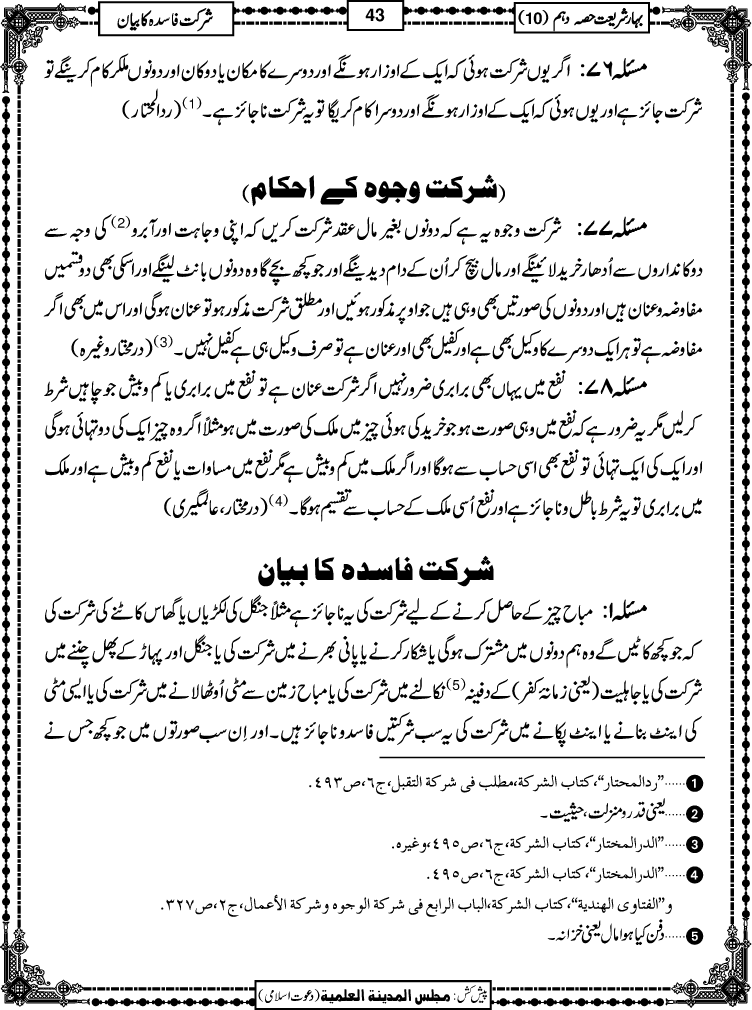 بہارِشریعت حصہ دہم (10)
43
شرکت فاسدہ کا بیان
مسئلہ ۷۶: اگر یوں شرکت ہوئی کہ ایک کے اوزار ہونگے اور دوسرے کا مکان یا دوکان اور دونوں ملکر کام کرینگے تو
شرکت جائز ہے اور یوں ہوئی کہ ایک کے اوزار ہونگے اور دوسرا کام کریگا تو یہ شرکت ناجائز ہے۔(1) (ردالمحتار)
(شرکت وجوہ کے احکام)
مسئلہ ۷۷: شرکت وجوہ یہ ہے کہ دونوں بغیر مال عقد شرکت کریں کہ اپنی وجاہت اور آبرو(2) کی وجہ سے
دوکانداروں سے اُدھار خرید لائینگے اور مال بیچ کر اُن کے دام دیدینگے اور جو کچھ بچے گا وہ دونوں بانٹ لینگے اور اسکی بھی دو قسمیں
مفاوضہ و عنان ہیں اور دونوں کی صورتیں بھی وہی ہیں جو اوپر مذکور ہوئیں اور مطلق شرکت مذکور ہو تو عنان ہوگی اور اس میں بھی اگر
مفاوضہ ہے تو ہر ایک دوسرے کا وکیل بھی ہے اور کفیل بھی اور عنان ہے تو صرف وکیل ہی ہے کفیل نہیں۔(3) (درمختار وغیرہ)
مسئلہ ۷۸: نفع میں یہاں بھی برابری ضرور نہیں اگر شرکت عنان ہے تو نفع میں برابری یا کم و بیش جو چاہیں شرط
کرلیں مگر یہ ضرور ہے کہ نفع میں وہی صورت ہو جو خرید کی ہوئی چیز میں ملک کی صورت میں ہو مثلاً اگر وہ چیز ایک کی دو تہائی ہوگی
اور ایک کی ایک تہائی تو نفع بھی اسی حساب سے ہوگا اور اگر ملک میں کم و بیش ہے مگر نفع میں مساوات یا نفع کم و بیش ہے اور ملک
میں برابری تو یہ شرط باطل و ناجائز ہے اور نفع اُسی ملک کے حساب سے تقسیم ہوگا۔(4) (درمختار، عالمگیری)
شرکت فاسدہ کا بیان
مسئلہ ۱: مباح چیز کے حاصل کرنے کے لیے شرکت کی یہ ناجائز ہے مثلاً جنگل کی لکڑیاں یا گھاس کاٹنے کی شرکت کی
کہ جو کچھ کاٹیں گے وہ ہم دونوں میں مشترک ہوگی یا شکار کرنے یا پانی بھرنے میں شرکت کی یا جنگل اور پہاڑ کے پھل چننے میں
شرکت کی یا جاہلیت (یعنی زمانۂ کفر) کے دفینہ(5) نکالنے میں شرکت کی یا مباح زمین سے مٹی اُوٹھا لانے میں شرکت کی یا ایسی مٹی
کی اینٹ بنانے یا اینٹ پکانے میں شرکت کی یہ سب شرکتیں فاسد و ناجائز ہیں۔ اور اِن سب صورتوں میں جو کچھ جس نے
1......"ردالمحتار"، کتاب الشرکة، مطلب فی شرکة التقبل، ج٦، ص٤٩٣.
2......یعنی قدر و منزلت، حیثیت۔
3......"الدرالمختار"، کتاب الشرکة، ج٦، ص٤٩٥، وغیرہ.
4......"الدرالمختار"، کتاب الشرکة، ج٦، ص٤٩٥.
و"الفتاوی الهندية"، کتاب الشرکة، الباب الرابع فی شرکة الوجوه وشرکة الأعمال، ج٢، ص٣٢٧.
5......دفن کیا ہوا مال یعنی خزانہ۔
پیش کش: مجلس المدینة العلمیة (دعوت اسلامی)